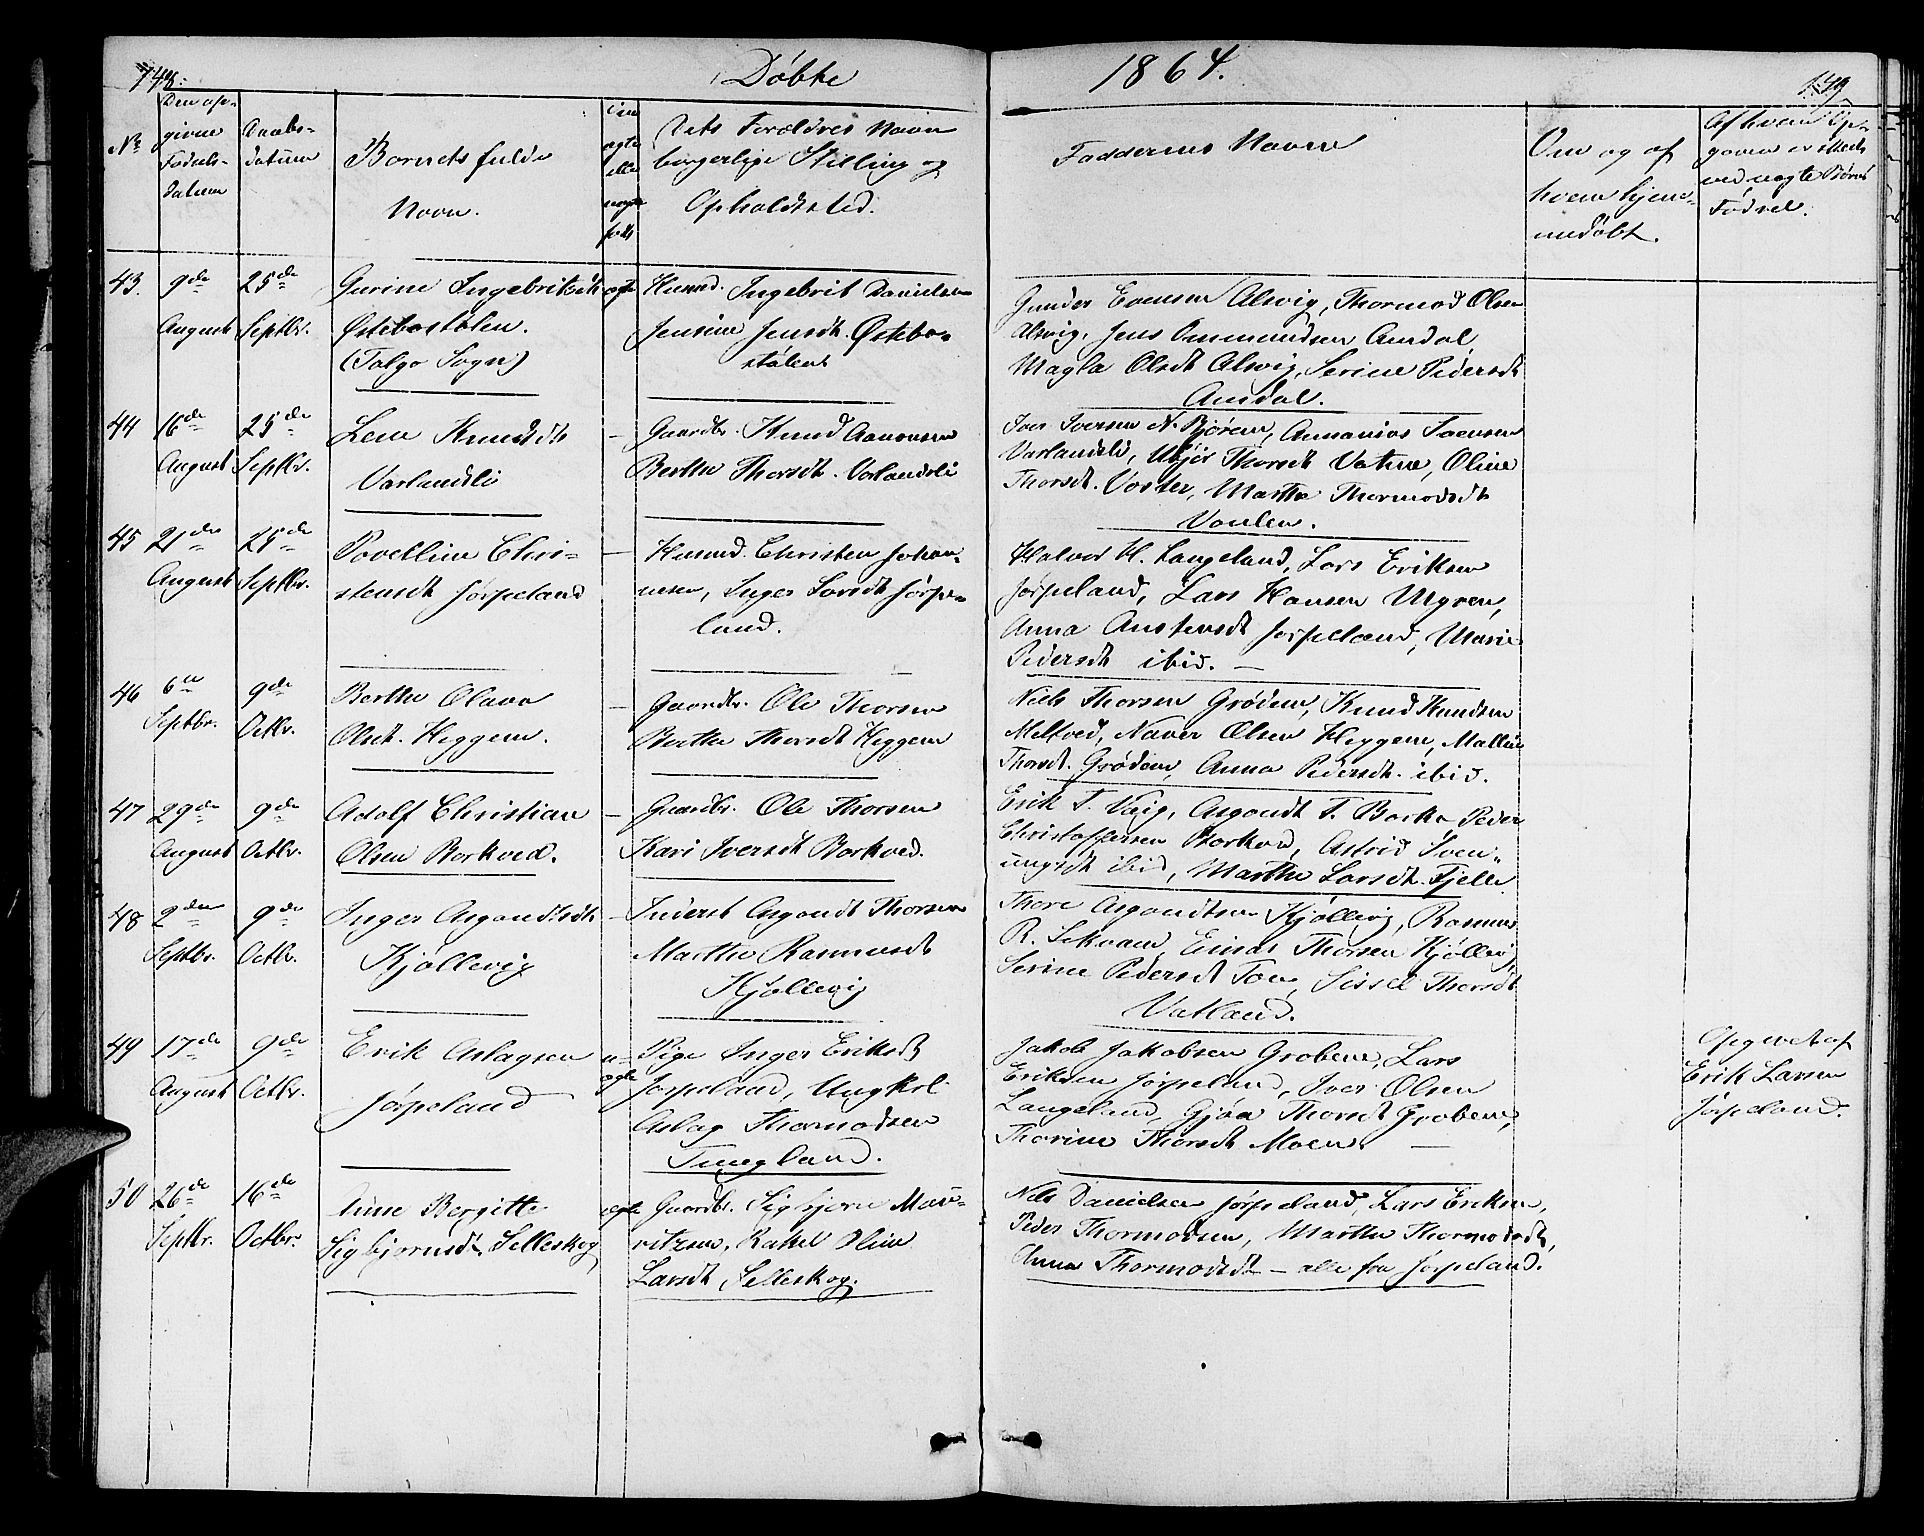 148.
Døbte
1864.
149
No
Den op-
givne
Fødsels-
datum
Daabs-
datum
Barnets fulde
Navn.
Om
ægte
eller
uægte
født
Dets Forældres Navn
borgerlige Stilling og
Opholdsted.
Faddernes Navne
Om og af
hvem hjem-
medøbt.
Af hvem Op-
gaven er
ved uægte Børns
Fødsel.
43. 9de August 25de Septbr.
Gurine Ingebriktsdt
Østebøstølen.
(Talgo Sogn)
ægte
Husmd. Ingebrit Danielsen
Jensine Jensdt. Østebø-
stølen
Gunder Evensen Alsvig, Thormod Olsen
Alsvig, Jens Ommundsen Amdal,
Magla Olsdt Alsvig, Serine Pedersdt
Amdal.
44 16de August 25de Septbr.
Lene Knudsdt
Varlandsli
-
Gaardbr. Knud Aanensen
Berthe Thorsdt. Varlandsli
Iver Iversen N. Bjøreim, Annanias Toensen
Varlandsli, Thorsdt Vatne, Oline
Thorsdt. Voster, Martha Thormodsdt
Vaulen.
45 21de August 25de Septbr.
Povelline Chri-
stensdt Jørpeland
-
Husmd. Christen Johan-
nesen, Inger Larsdt Jørpe-
land.
Halvor H. Langeland, Lars Eriksen
Jørpeland, Lars Hansen Myren,
Anna Austensdt Jørpeland, Marie
Pedersdt ibid. -
46 6te Septbr. 9de Octbr.
Berthe Olava
Olsdt. Heggem.
-
Gaardbr. Ole Thorsen
Berthe Thorsdt Heggem
Niels Thorsen Grødem, Knud Knudsen
Meltved, Naver Olsen Heggem, Malline
Thorsdt. Grødem, Anna Pedersdt. ibid.
47 29de August 9de Octbr.
Adolf Christian
Olsen Barkved.
-
Gaardbr. Ole Thorsen
Kari Iversdt Barkved.
Erik T. Vaig, Asgoudt T. Barkv Peder
Christoffersen Barkved, Astrid Sven-
ungsdt ibid, Marthe Larsdt. Fjelle
48 2den Septbr. 9de Octbr.
Inger Asgoudtsdt
Kjøllevig
-
Inderst Asgoudt Thorsen
Marthe Rasmusdt
Kjøllevig
Thore Asgoudtsen Kjøllevig, Rasmus
R. Sekvam, Einar Thorsen Kjøllevig
Serine Pedersdt Tou, Sissel Thorsdt
Vatland.
49 17de August 9de Octbr.
Erik Aslagsen
Jørpeland
u-
ægte
Pige Inger Eriksdt
Jørpeland, Ungkrl.
Aslag Thormodsen
Tungland.
Jakob Jakobsen Groben, Lars
Eriksen Jørpeland, Iver Olsen
Langeland, Gjøa Thorsdt Groben,
Thorine Thorsdt Moen. -
Opgivet af
Erik Larsen
Jørpeland.
50 26de Septbr. 16de Octbr.
Anne Bergitte
Sigbjørnsdt. Selleskog
ægte
Gaardbr. Sigbjørn Mau-
ritzsen, Rakel Oline
Larsdt Selleskog.
Nils Danielsen Jørpeland, Lars Eriksen,
Peder Thormodsen, Marthe Thormodsdt,
Anna Thormodsdt - alle fra Jørpeland.